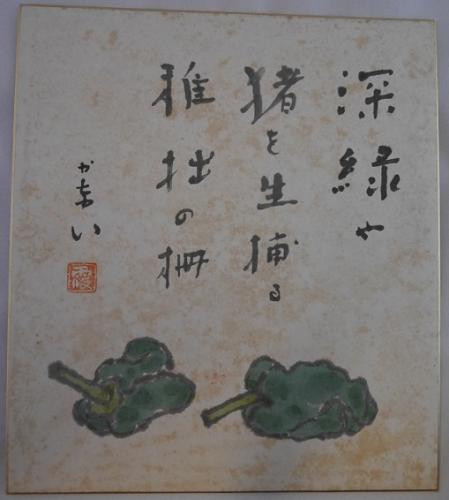 深緑や
猪を生捕る
稚拙の柵
かまい
霞